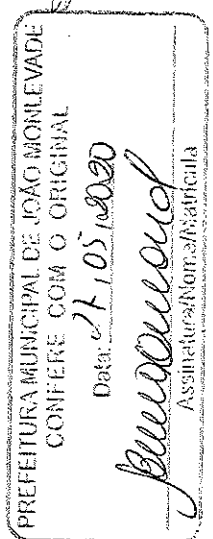 PREFEITURA MUNICIPAL DE JOÃO MONLEVADE
CONFERE COM O ORIGINAL
Data: 27 / 05 / 2020
Assinatura/Nome/Matrícula